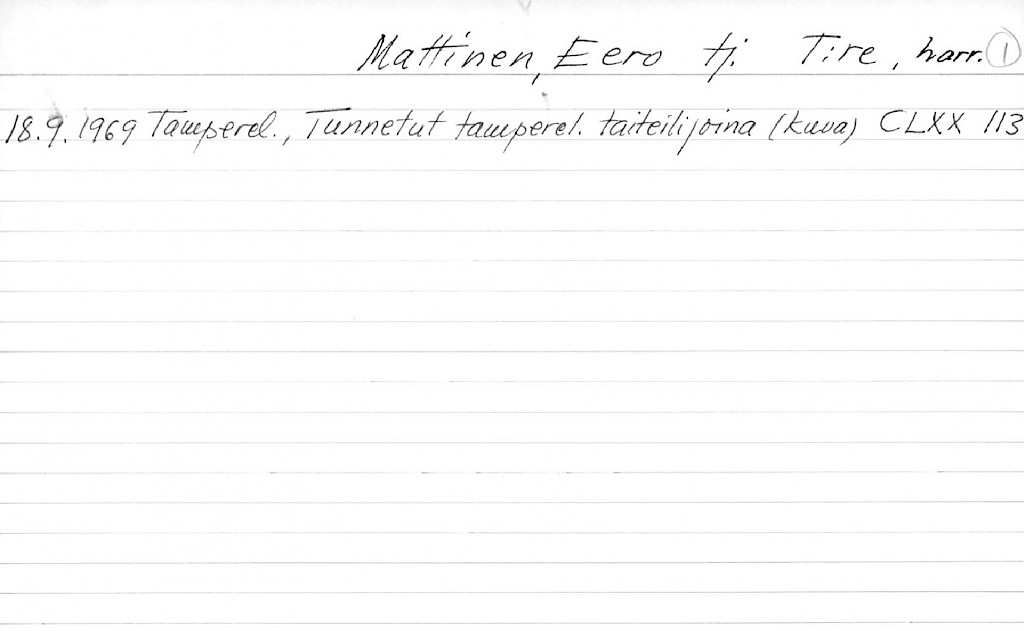 Mattinen, Eero tj. Tire, harr. 1
18.9.1969 Tamperel., Tunnetut tamperel. taiteilijoina (kuva) CLXX 113